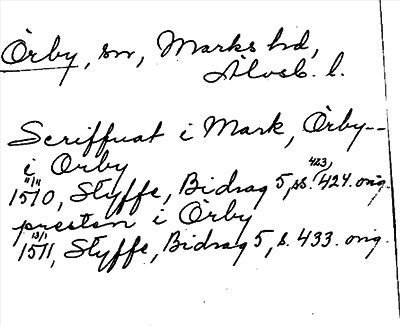 Örby, sn, Marks hd,
Älvsb. l.
Scriffuat i Mark, Örby--
i Örby
11/11 423,
1510, Styffe, Bidrag 5, ss. 424. orig.
presten i Örby
13/1
1511, Styffe, Bidrag 5, s. 433. orig.